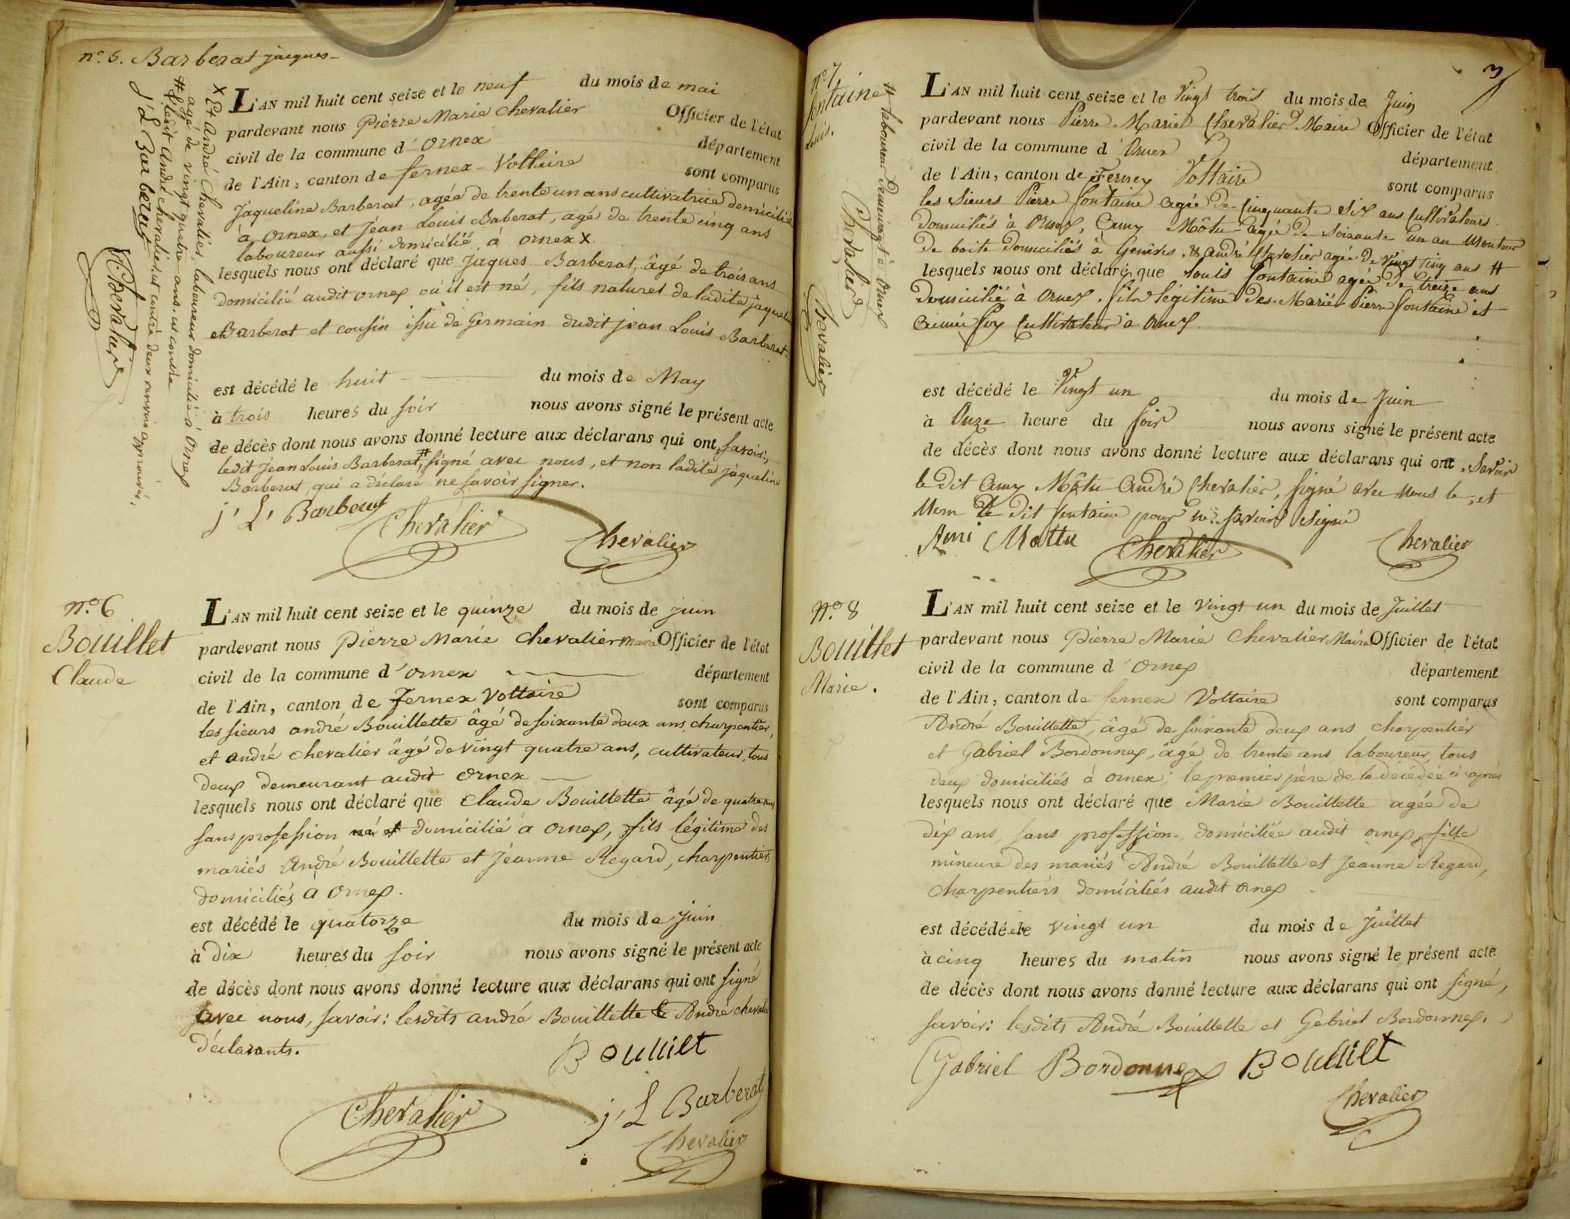 nº 5. Barberat jaques
X Et André Chevalier, laboureur domicilié à Ornex
agé de vingt quatre ans. et contre
# ledit André chevalier. et contre deux renvois approuvés.
j' L' Barberat
Chevalier
L'AN mil huit cent seize et le neuf du mois de mai
pardevant nous Pierre Marie Chevalier Officier de l'état
civil de la commune d' Ornex département
de l'Ain, canton de fernex-Voltaire sont comparus
Jaqueline Barberat, agée de trente un ans cultivatrice domiciliée
à Ornex, et Jean Louis Baberat, agé de trente cinq ans
laboureur aussi domicilié à ornex X
lesquels nous ont déclaré que Jaques Barberat, âgé de trois ans
domicilié audit ornex où il est né, fils naturel de ladite jaqueline
Barberat et cousin issu de Germain dudit jean Louis Barberat.
est décédé le huit du mois de May
à trois heures du soir nous avons signé le présent acte
de décès dont nous avons donné lecture aux déclarans qui ont, savoir;
ledit Jean Louis Barberat, # signé avec nous, et non ladite jaqueline
Barberat, qui a déclaré ne savoir signer.
j' L' Barberat Chevalier Chevalier
nº 6
Bouillet
Claude
L'AN mil huit cent seize et le quinze du mois de juin
pardevant nous Pierre Marie Chevalier Maire Officier de l'état
civil de la commune d' Ornex département
de l'Ain, canton de Fernex Voltaire sont comparus
les sieurs andré Bouillette âgé de soixante deux ans, charpentier,
et andré chevalier âgé de vingt quatre ans, cultivateur, tous
deux demeurant audit Ornex
lesquels nous ont déclaré que Claude Bouillette âgé de quatre ans
sans profession né et domicilié à ornex, fils légitime des
mariés André Bouillette et Jéanne Regard, charpentier,
domiciliés a Ornex.
est décédé le quatorze du mois de juin
à dix heures du soir nous avons signé le présent acte
de décès dont nous avons donné lecture aux déclarans qui ont signé
avec nous, savoir: lesdits andré Bouillette & André chevalier
déclarants.
Bouillet
Chevalier j' L Barberat
Chevalier
3
nº 7.
fontaine
Louis.
# laboureur Demeurant à Ornex
Chevalier
Chevalier
L'AN mil huit cent seize et le Vingt trois du mois de Juin
pardevant nous Pierre Marie Chevalier Maire Officier de l'état
civil de la commune d' Ornex département
de l'Ain, canton de Ferney Voltaire sont comparus
les sieurs Pierre fontaine agée de Cinquante six ans Cultivateurs
domiciliés à Ornex, Camy Môttu agée De Soixante un an Monteur
De boite domiciliés à Genêve, & andré Chevalier agée De vingt Cinq ans #
lesquels nous ont déclaré que Louis fontaine agée De treize ans
Domicilié à Ornex. fils légitime Des Mariés Pierre fontaine et
Aimée Cultivateur à Ornex
est décédé le Vingt un du mois de Juin
à Onze heure du soir nous avons signé le présent acte
de décès dont nous avons donné lecture aux déclarans qui ont, Savoir
le dit Camy Môttu André Chevalier, signé avec nous et
Non le dit fontaine pour ne savoir signé
Ami Mottu Chevalier Chevalier
nº 8
Bouillet
Marie.
L'AN mil huit cent seize et le vingt un du mois de Juillet
pardevant nous Pierre Marie Chevalier Maire Officier de l'état
civil de la commune d' Ornex département
de l'Ain, canton de fernex Voltaire sont comparus
André Bouillette, âgé de soixante deux ans charpentier
et Gabriel Bordonnex, âgé de trente ans laboureur, tous
deux domiciliés à ornex; le premier père de la décédée ci après
lesquels nous ont déclaré que Marie Bouillette agée de
dix ans, sans profession domiciliée audit ornex, fille
mineure des mariés André Bouillette et Jeanne Regard,
charpentiers domiciliés audit ornex.
est décédée le vingt un du mois de Juillet
à cinq heures du matin nous avons signé le présent acte
de décès dont nous avons donné lecture aux déclarans qui ont signé,
savoir: lesdits André Bouillette et Gabriel Bordonnex.
Gabriel Bordonnex Bouillet
Chevalier